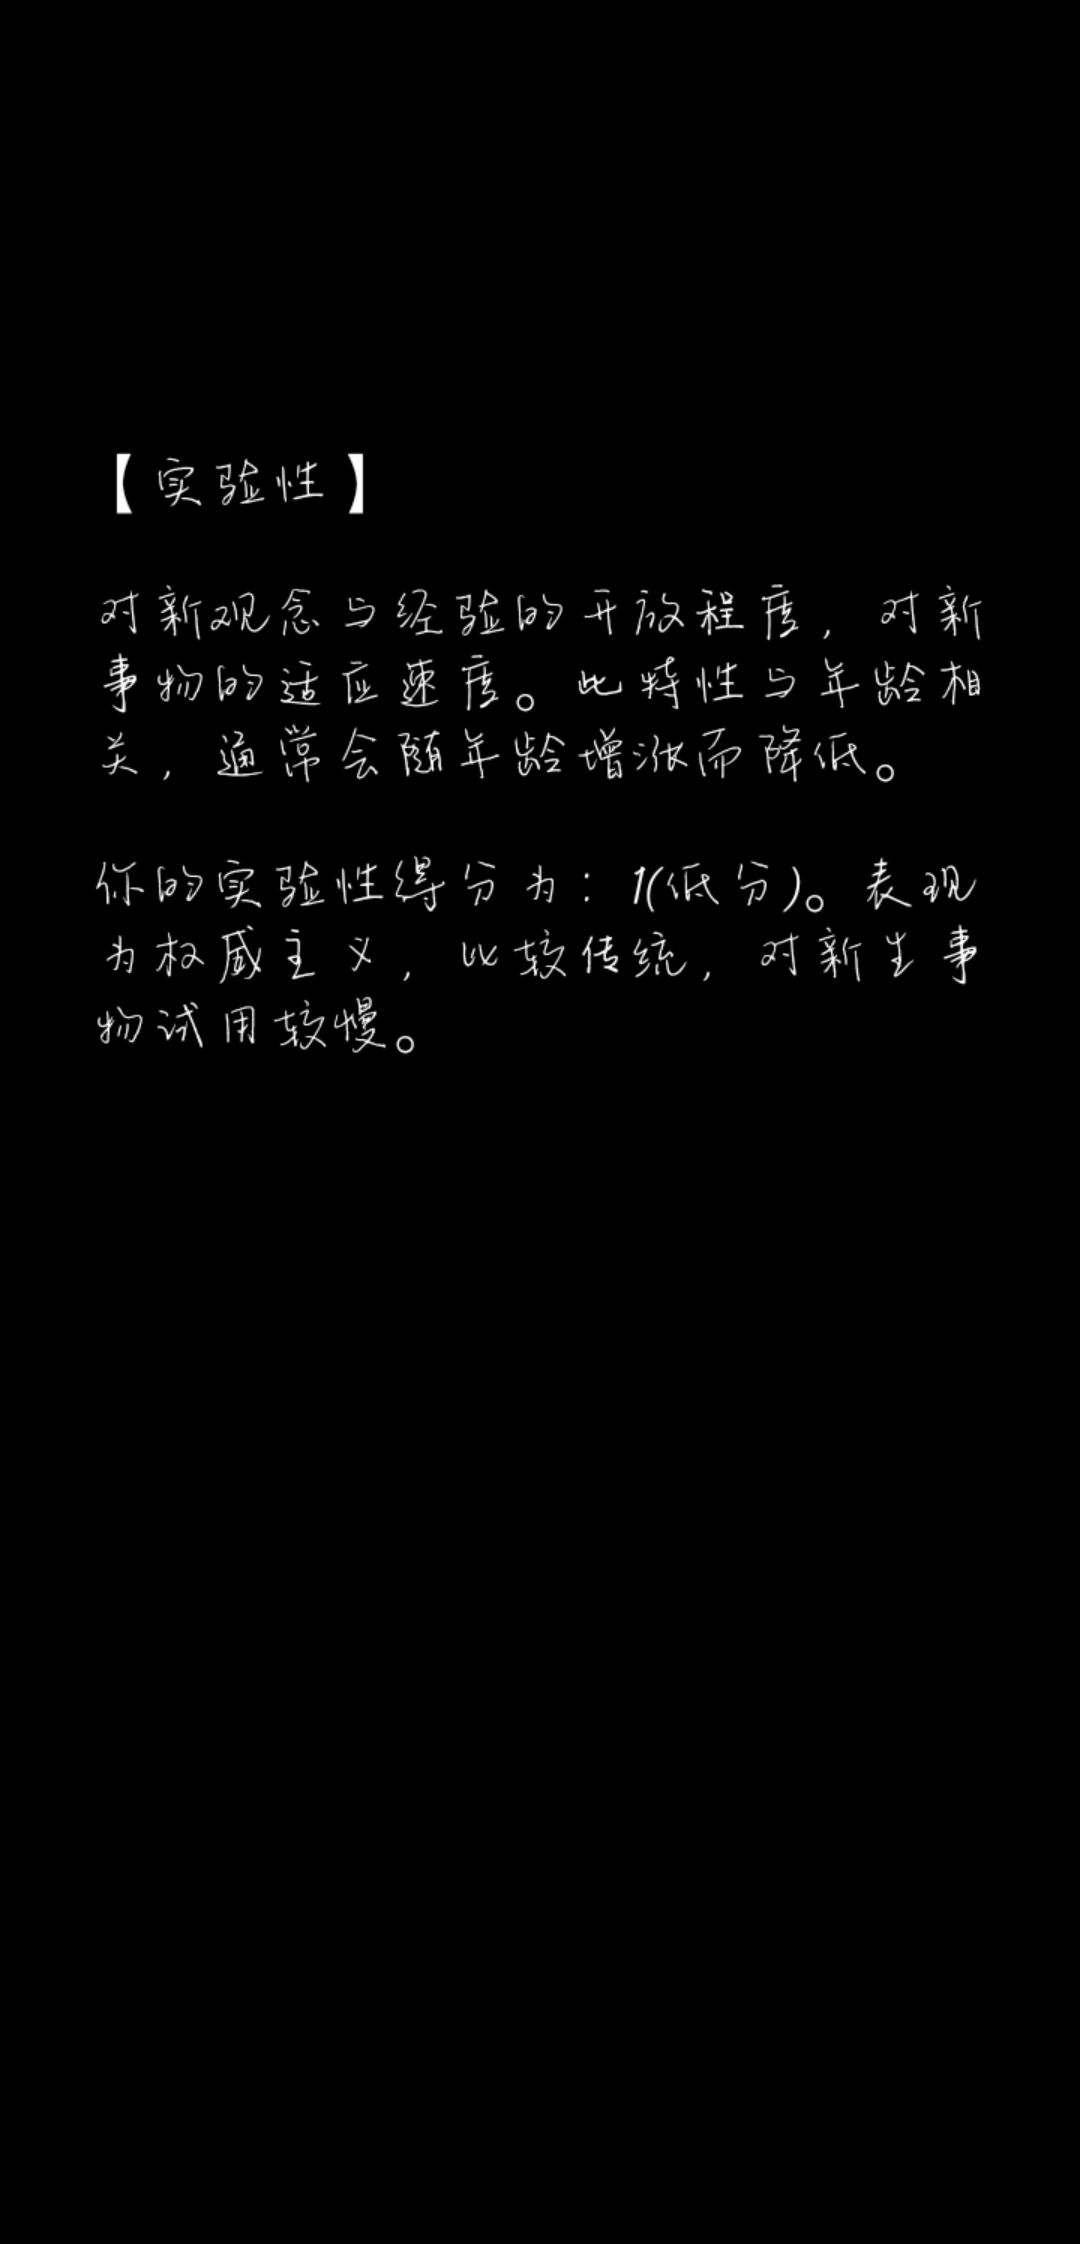 【实验性】
对新观念与经验的开放程度，对新
事物的适应速度。此特性与年龄相
关，通常会随年龄增涨而降低。
你的实验性得分为：1(低分)。表现
为权威主义，比较传统，对新生事
物试用较慢。